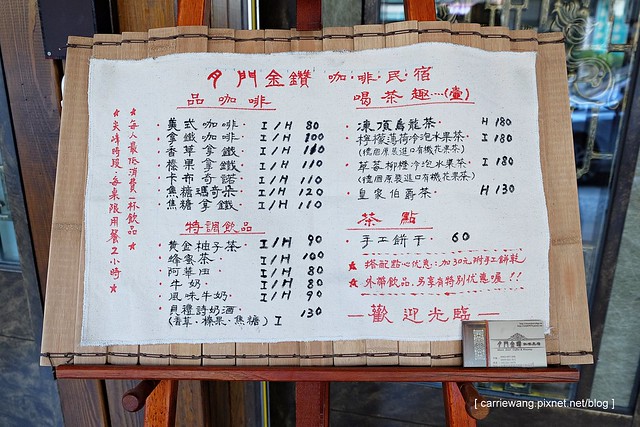 門金鑽 咖·啡·民·宿
品 咖 啡
美式咖啡· I / H 80
拿鐵咖啡· I / H 100
香草拿鐵· I / H 110
榛果拿鐵· I / H 110
卡布奇諾· I / H 110
焦糖瑪奇朵· I / H 120
焦糖拿鐵· I / H 110
特調飲品
黃金柚子茶· I / H 90
蜂蜜茶· I / H 100
阿華田· I / H 80
牛奶· I / H 80
風味牛奶· I / H 90
貝禮詩奶酒· 130
(香草·榛果·焦糖) I
喝茶趣····(壺)
凍頂烏龍茶· H 180
檸檬薄荷冷泡水果茶· I 180
(德國原裝進口有機花果茶)
草莓柳橙冷泡水果茶· I 180
(德國原裝進口有機花果茶)
皇家伯爵茶· H 130
茶 點
手工餅干· 60
★搭配點心优惠:加30元附手工餅乾
★外帶飲品·另享有特別优惠喔!!
—歡迎光臨—
★每人最低消費一杯飲品★
★尖峰時段·每桌限用餐2小時★
[ carriewang.pixnet.net/blog ]